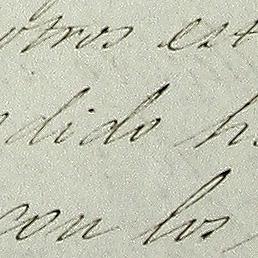 otros est
dido h
con los